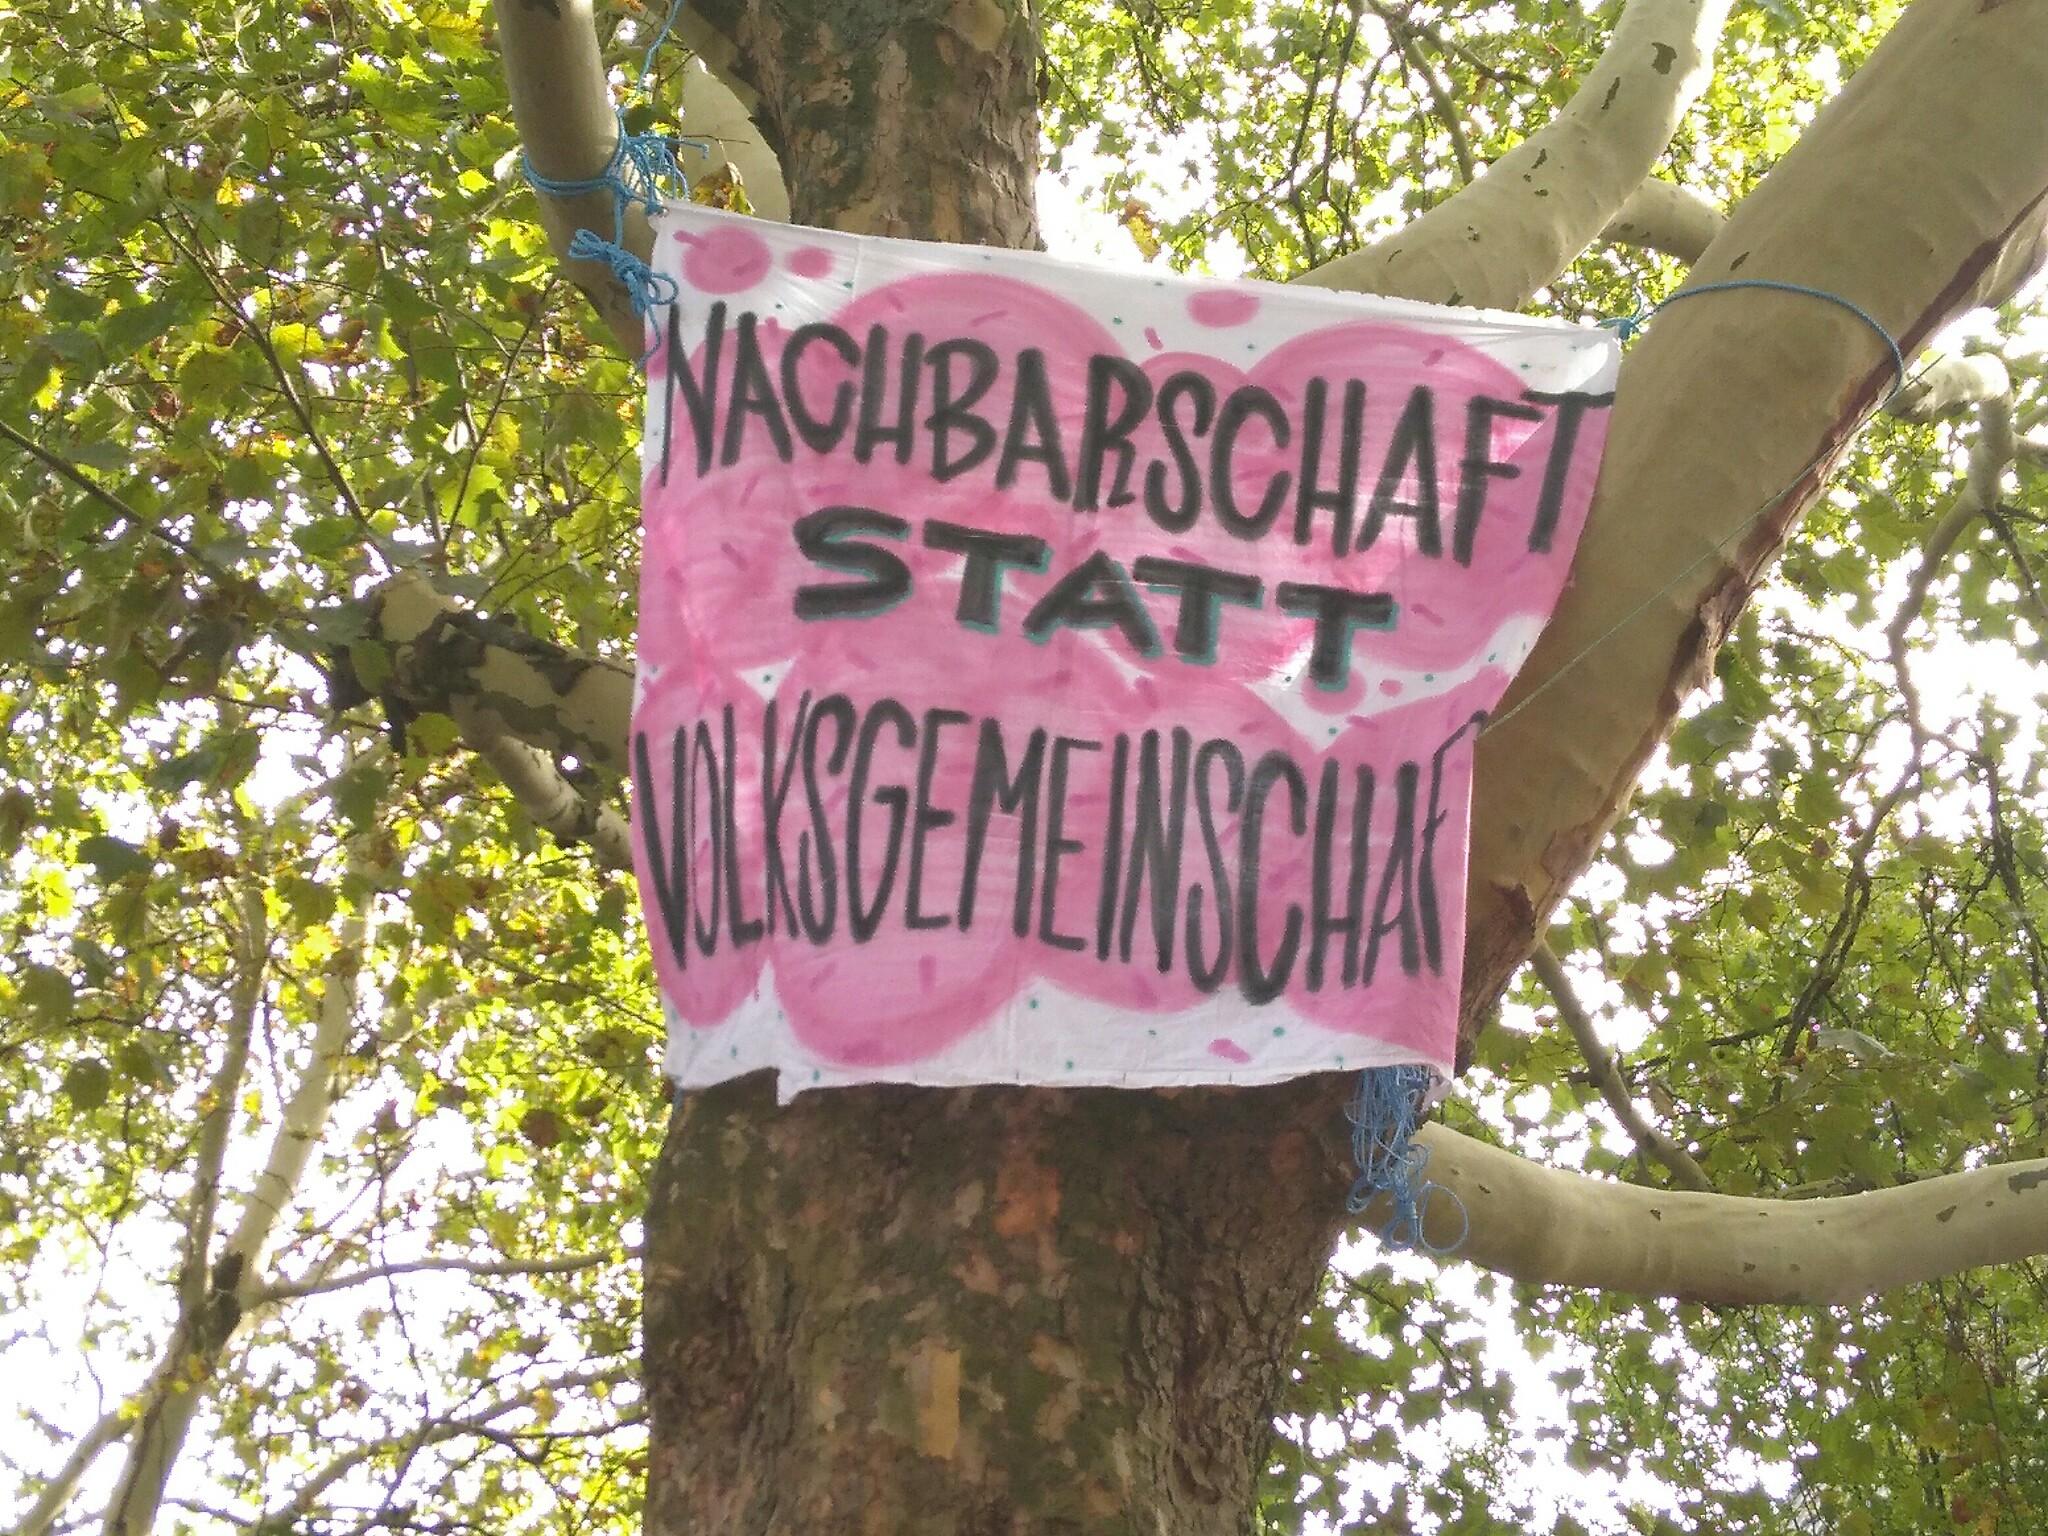 NACHBARSCHAFT
STATT
VOLKSGEMEINSCHAF